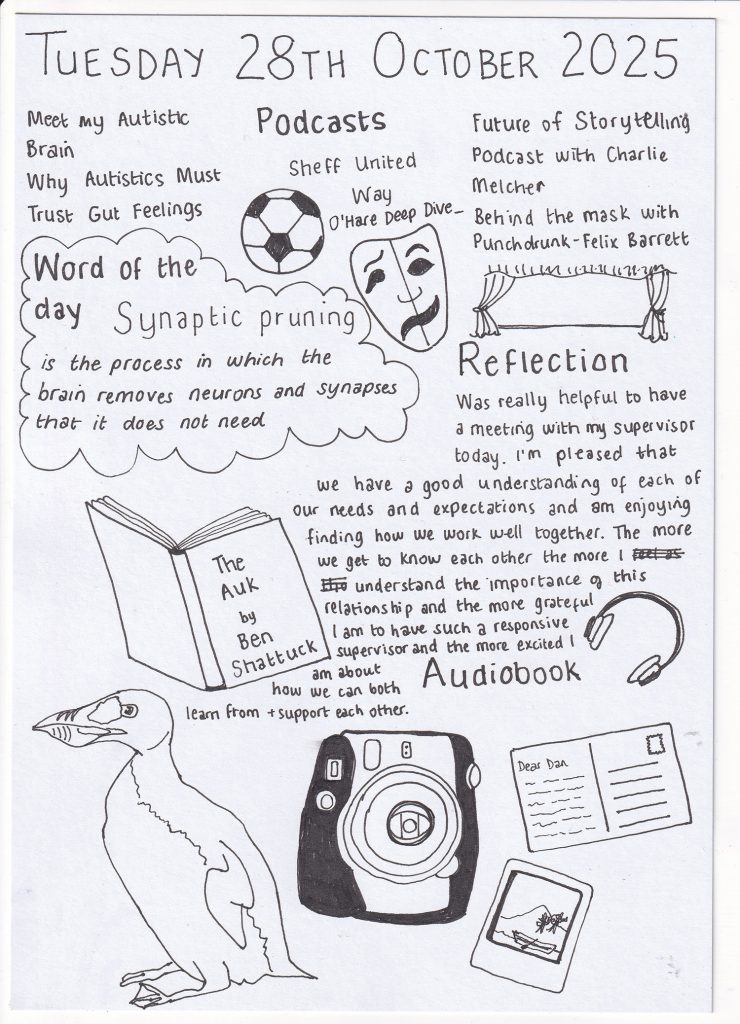 TUESDAY 28TH OCTOBER 2025
Meet my Autistic
Brain
Why Autistics Must
Trust Gut Feelings
Podcasts
Sheff United
Way
O'Hare Deep Dive-
Future of Storytelling
Podcast with Charlie
Melcher
Behind the mask with
Punchdrunk-Felix Barrett
Word of the
day Synaptic pruning
is the process in which the
brain removes neurons and synapses
that it does not need
Reflection
Was really helpful to have
a meeting with my supervisor
today. I'm pleased that
we have a good understanding of each of
our needs and expectations and am enjoying
finding how we work well together. The more
we get to know each other the more I
understand the importance of this
relationship and the more grateful
I am to have such a responsive
supervisor and the more excited I
am about
how we can both
learn from + support each other.
The
Auk
by
Ben
Shattuck
Audiobook
Dear Dan